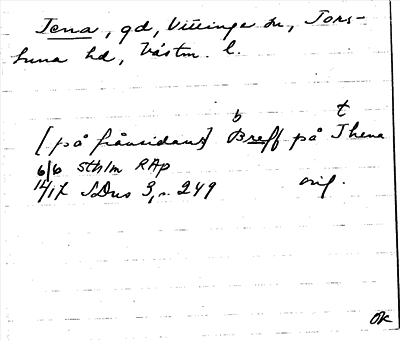 Jena, gd, Vittinge sn, Tors-
tuna hd, Västm. l.
b t
[på frånsidan] Breff på Thena
6/6 Sthlm RAp
1417 SDns 3, s. 249 orig.
OK